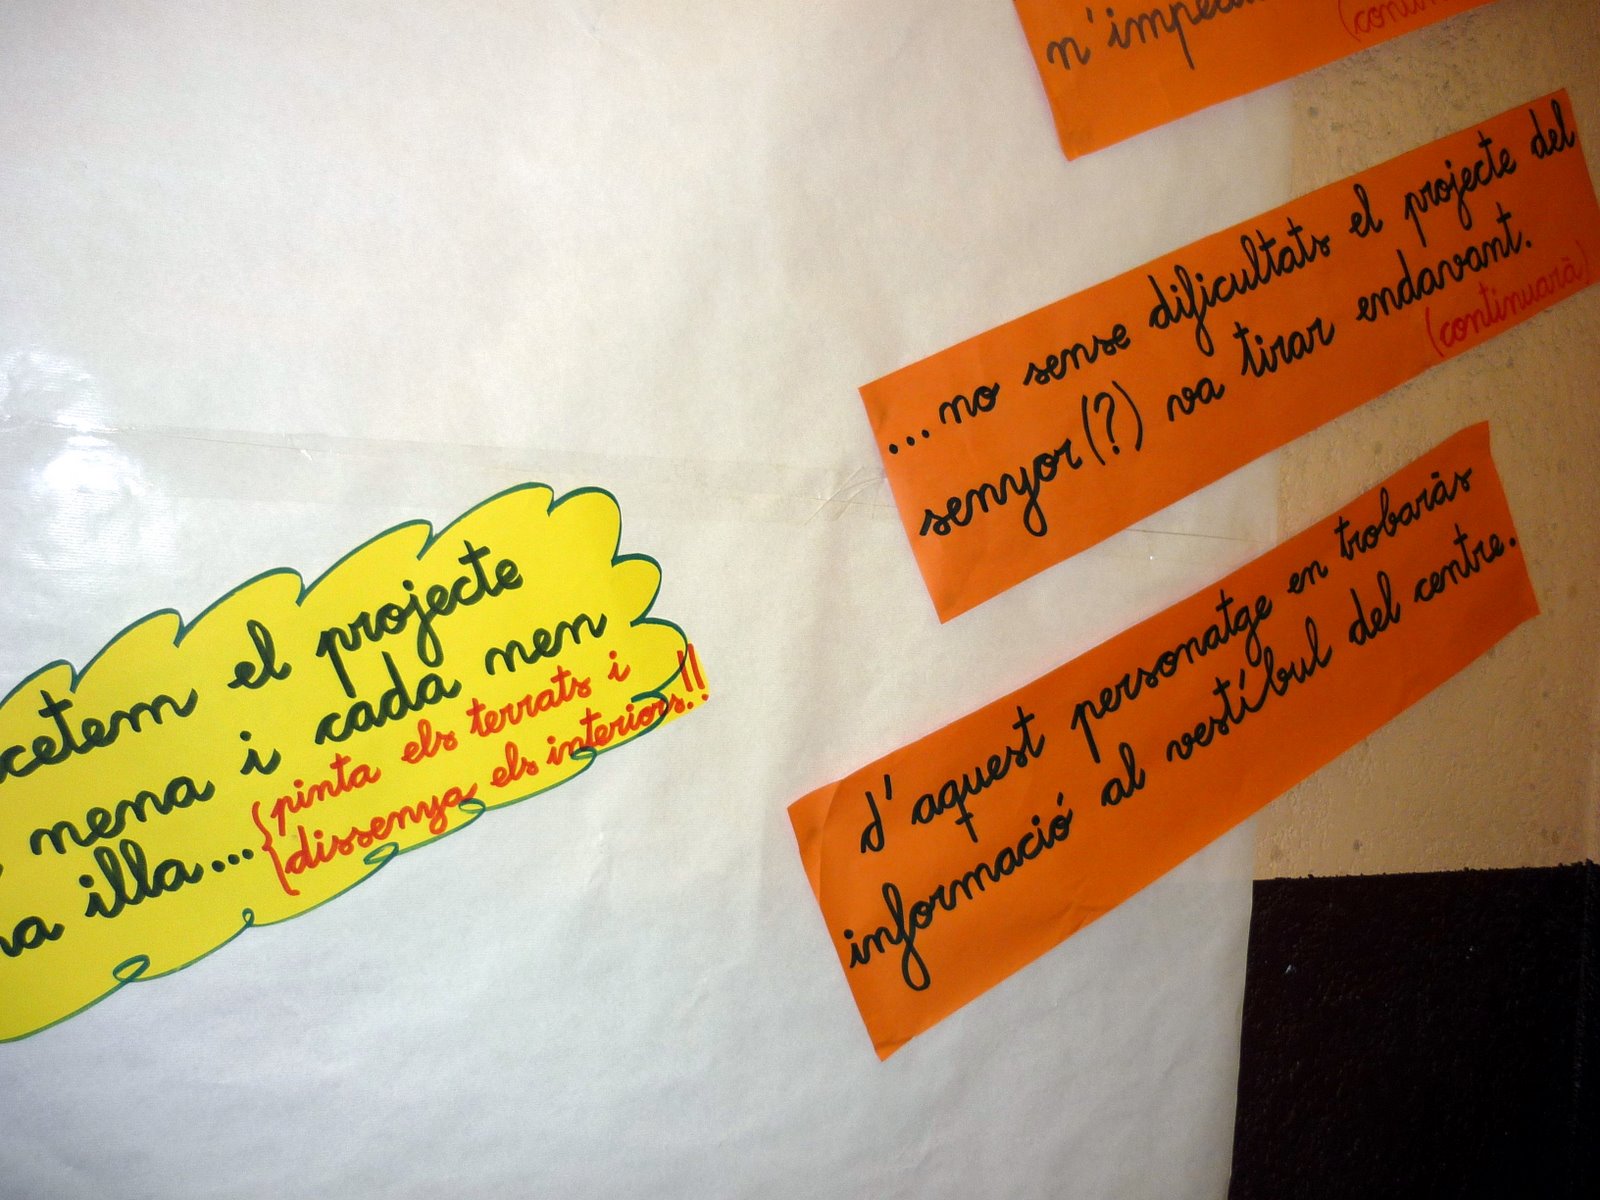 ...cetem el projecte
mena i cada men
a illa... {pinta els terrats i
{dissenya els interiors!!
n'impedi
...no sense dificultats el projecte del
senyor(?) va tirar endavant.
(continuarà)
d'aquest personatge en trobaràs
informació al vestíbul del centre.